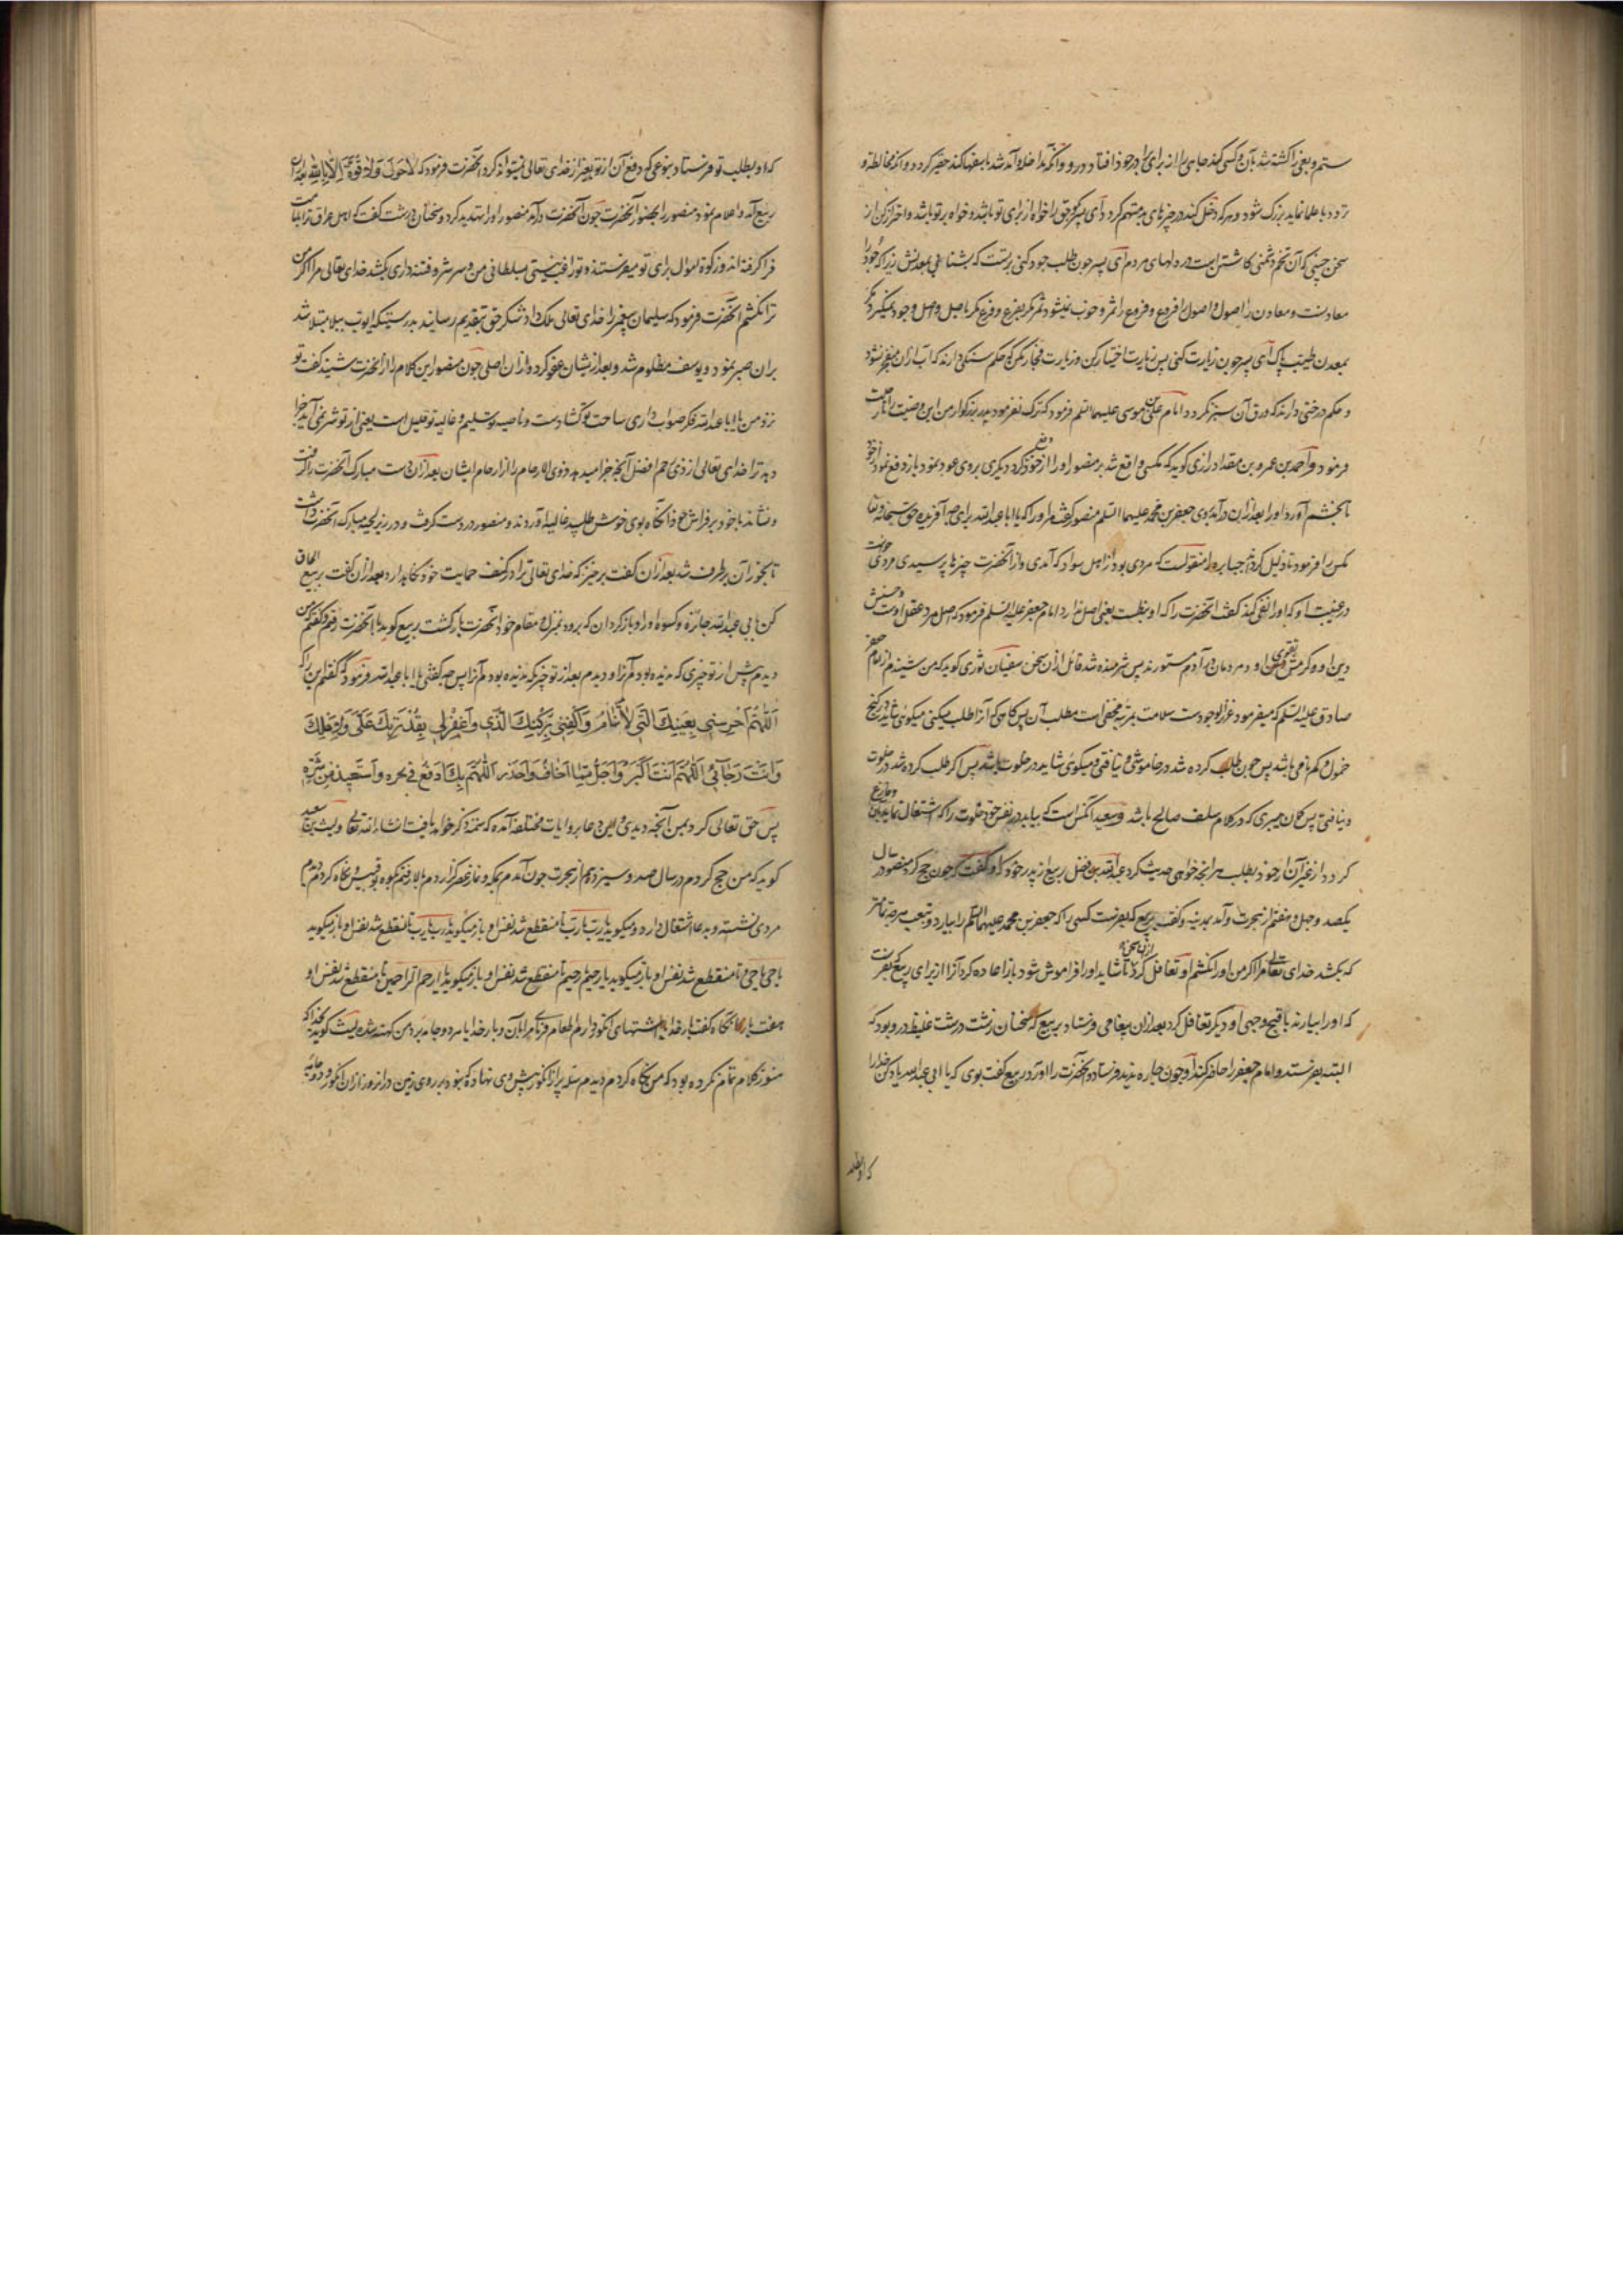 ستم و بغی را کشته شد بآن و کسی که کند چاهی را از برای برادر خود افتاد در رو و آنکه مداخله و آمد شد با سفها کند حقیر گردد و آنکه مخالطه و
تردد با علما نماید بزرگ شود و هر که دخل کند در چیزهای بد متهم گردد ای پسر بگو حق را خواه از برای تو باشد و خواه بر تو باشد و احتراز کن از
سخن چینی که آن تخم دشمنی کاشتن است در دلهای مردم ای پسر چون طلب جود کنی بر تست که بشتابی بمعدنش زیرا که جود را
معادنست و معادن را اصول و اصول را فروع و فروع را ثمر و خوب نمیشود ثمر مگر بفرع و فرع مگر باصل و اصل وجود نمیگیرد مگر
بمعدن طیب پاک ای پسر چون زیارت کنی پس زیارت اخیار کن و زیارت فجار مکن که حکم سنگی دارند که آب از آن منفجر نشود
و حکم درختی دارند که ورق آن سبز نگردد و امام علی بن موسی علیهما السلم فرمود که ترک نفرمود پدر بزرگوار من این وصیت را تا رحلت
فرمود و احمد بن عمرو بن مقداد رازی گوید که مگسی واقع شد بر منصور او را از خود دفع کرد دیگری بروی عود نمود باز دفع نمود از خود
تا بخشم آورد او را بعد از آن در آمد بوی جعفر بن محمد علیهما السلم منصور گفت مر او را که یا ابا عبدالله برای چه آفریده حق سبحانه و تعالی
مگس را فرمود تا ذلیل کرداند جبابره را منقولست که مردی بود از اهل سواد که آمدی و از آنحضرت چیزها پرسیدی مردی خواست
در غیبت او که او را نفی کند گفت آنحضرت را که او نبطیست یعنی اصل ندارد امام جعفر علیه السلم فرمود که اصل مرد عقل اوست و حسبش
دین او و کرمش تقوی او و مردمان در آدم مستورند پس شرمنده شد قائل از آن سخن سفیان ثوری گوید که من شنیدم از امام جعفر
صادق علیه السلم که میفرمود عزیز الوجودست سلامت بمرتبه که مخفی است مطلب آن پس گاهی که آنرا طلب میکنی میگوئی شاید در کنج
خمول و گم نامی باشد پس چون طلب کرده شد در خاموشی و نیافتی میگوئی شاید در خلوت باشد پس اگر طلب کرده شد در خلوت
و نیافتی پس گمان میبری که در کلام سلف صالح باشد و سعید آنکس است که بیابد در نفس خود خلوت را که اشتغال نماید بدان و فارغ
گردد از غیر آن از خود بطلب هر آنچه خواهی حدیث کرد عبدالله بن فضل ربیع از پدر خود که او گفت که چون حج کرد منصور در سال
یکصد و چهل و هفتم از هجرت و آمد بمدینه و گفت بربیع که بفرست کسی را که جعفر بن محمد علیهما السلم را بیارد و بتعب هر چه تمامتر
که بکشد خدای تعالی مرا اگر من او را نکشم او تغافل کرد از آن سخن تا شاید او را فراموش شود باز اعاده کرد آنرا از برای ربیع که بفرست
که او را بیارند باقبح وجهی او دیگر تغافل کرد بعد از آن پیغامی فرستاد بربیع که سخنان زشت درشت غلیظ درو بود که
البته بفرستد و امام جعفر را حاضر کند او چون چاره ندید فرستاد و آنحضرت را آورد ربیع گفت بوی که یا ابی عبدالله یاد کن خدا را
که او بطلب
که او بطلب تو فرستاد بنوعی که دفع آن از تو بغیر از خدای تعالی نمیتواند کرد آنحضرت فرمود که لا حول ولا قوة الا بالله بعد از آن
ربیع آمد و اعلام نمود منصور را بحضور آنحضرت چون آنحضرت در آمد منصور او را تهدید کرد و سخنان درشت گفت که اهل عراق ترا بامامت
فرا گرفته اند و زکوة اموال برای تو میفرستند و تو راضی نیستی بسلطانی من و سر شر و فتنه داری بکشد خدای تعالی مرا اگر من
ترا نکشم آنحضرت فرمود که سلیمان پیغمبر را خدای تعالی ملک داد شکر حق بتقدیم رسانید بدرستیکه ایوب ببلا مبتلا شد
بر آن صبر نمود و یوسف مظلوم شد و بعد از ایشان عفو کرد و از آن اصلی چون منصور این کلام را از آنحضرت شنید گفت تو
نزد من یا ابا عبدالله فکر صواب داری ساحت تو گشادست و ناصیه تو سلیم و غائله تو قلیل است یعنی از تو شر نمی آید جزا
دهد ترا خدای تعالی از ذی رحم افضل آنچه جزا میدهد ذوی الارحام را از ارحام ایشان بعد از آن دست مبارک آنحضرت را گرفت
و نشاند با خود بر فراش خود آنگاه بوی خوش طلبید غالیه آوردند و منصور در دست گرفت و در زیر لحیه مبارکه آنحضرت داشت
تا بخور آن برطرف شد بعد از آن گفت برخیز که خدای تعالی ترا در کنف حمایت خود نگاه دارد بعد از آن گفت بربیع الحاق
کن بابی عبدالله جائزه و کسوه او را و باز گردان که برود بمنزل و مقام خود آنحضرت بازگشت ربیع گوید با آنحضرت رفتم و گفتم من
دیدم پیش از تو چیزی که ندیده بودم آنرا و دیدم بعد از تو چیزی که ندیده بودم آنرا پس چه گفتی یا ابا عبدالله فرمود که گفتم این را که
اللهم احرسنی بعینک التی لا تنام واکنفنی برکنک الذی واغفر لی بقدرتک علی ولا اهلک
وانت رجائی اللهم انت اکبر واجل مما اخاف واحذر اللهم بک ادفع فی نحره واستعیذ من شره
پس حق تعالی کرد بمن آنچه دیدی و این دعا بروایات مختلفه آمده که مذکور خواهد یافت انشاء الله تعالی و لیث بن سعد
گوید که من حج کردم در سال صد و سیزدهم از هجرت چون آمدم بمکه و نماز عصر گزاردم بالا رفتم بکوه بو قبیس و نگاه کردم دیدم
مردی نشسته و بدعا اشتغال دارد و میگوید یا رب یا رب تا منقطع شد نفس او باز میگوید رب رب تا منقطع شد نفس او باز میگوید
یا حی یا حی تا منقطع شد نفس او باز میگوید یا رحیم یا رحیم تا منقطع شد نفس او باز میگوید یا ارحم الراحمین تا منقطع شد نفس او
هفت بار آنگاه گفت بار خدایا اشتهای انگور دارم اطعام فرمای مرا بآن و بار خدایا هر دو جامه برد من کهنه شده لیث گوید بخدا که
هنوز کلام تمام نکرده بود که من نگاه کردم دیدم سله پر از انگور پیش وی نهاده که نبود بر روی زمین در آنروز از آن انگور و دو جامه